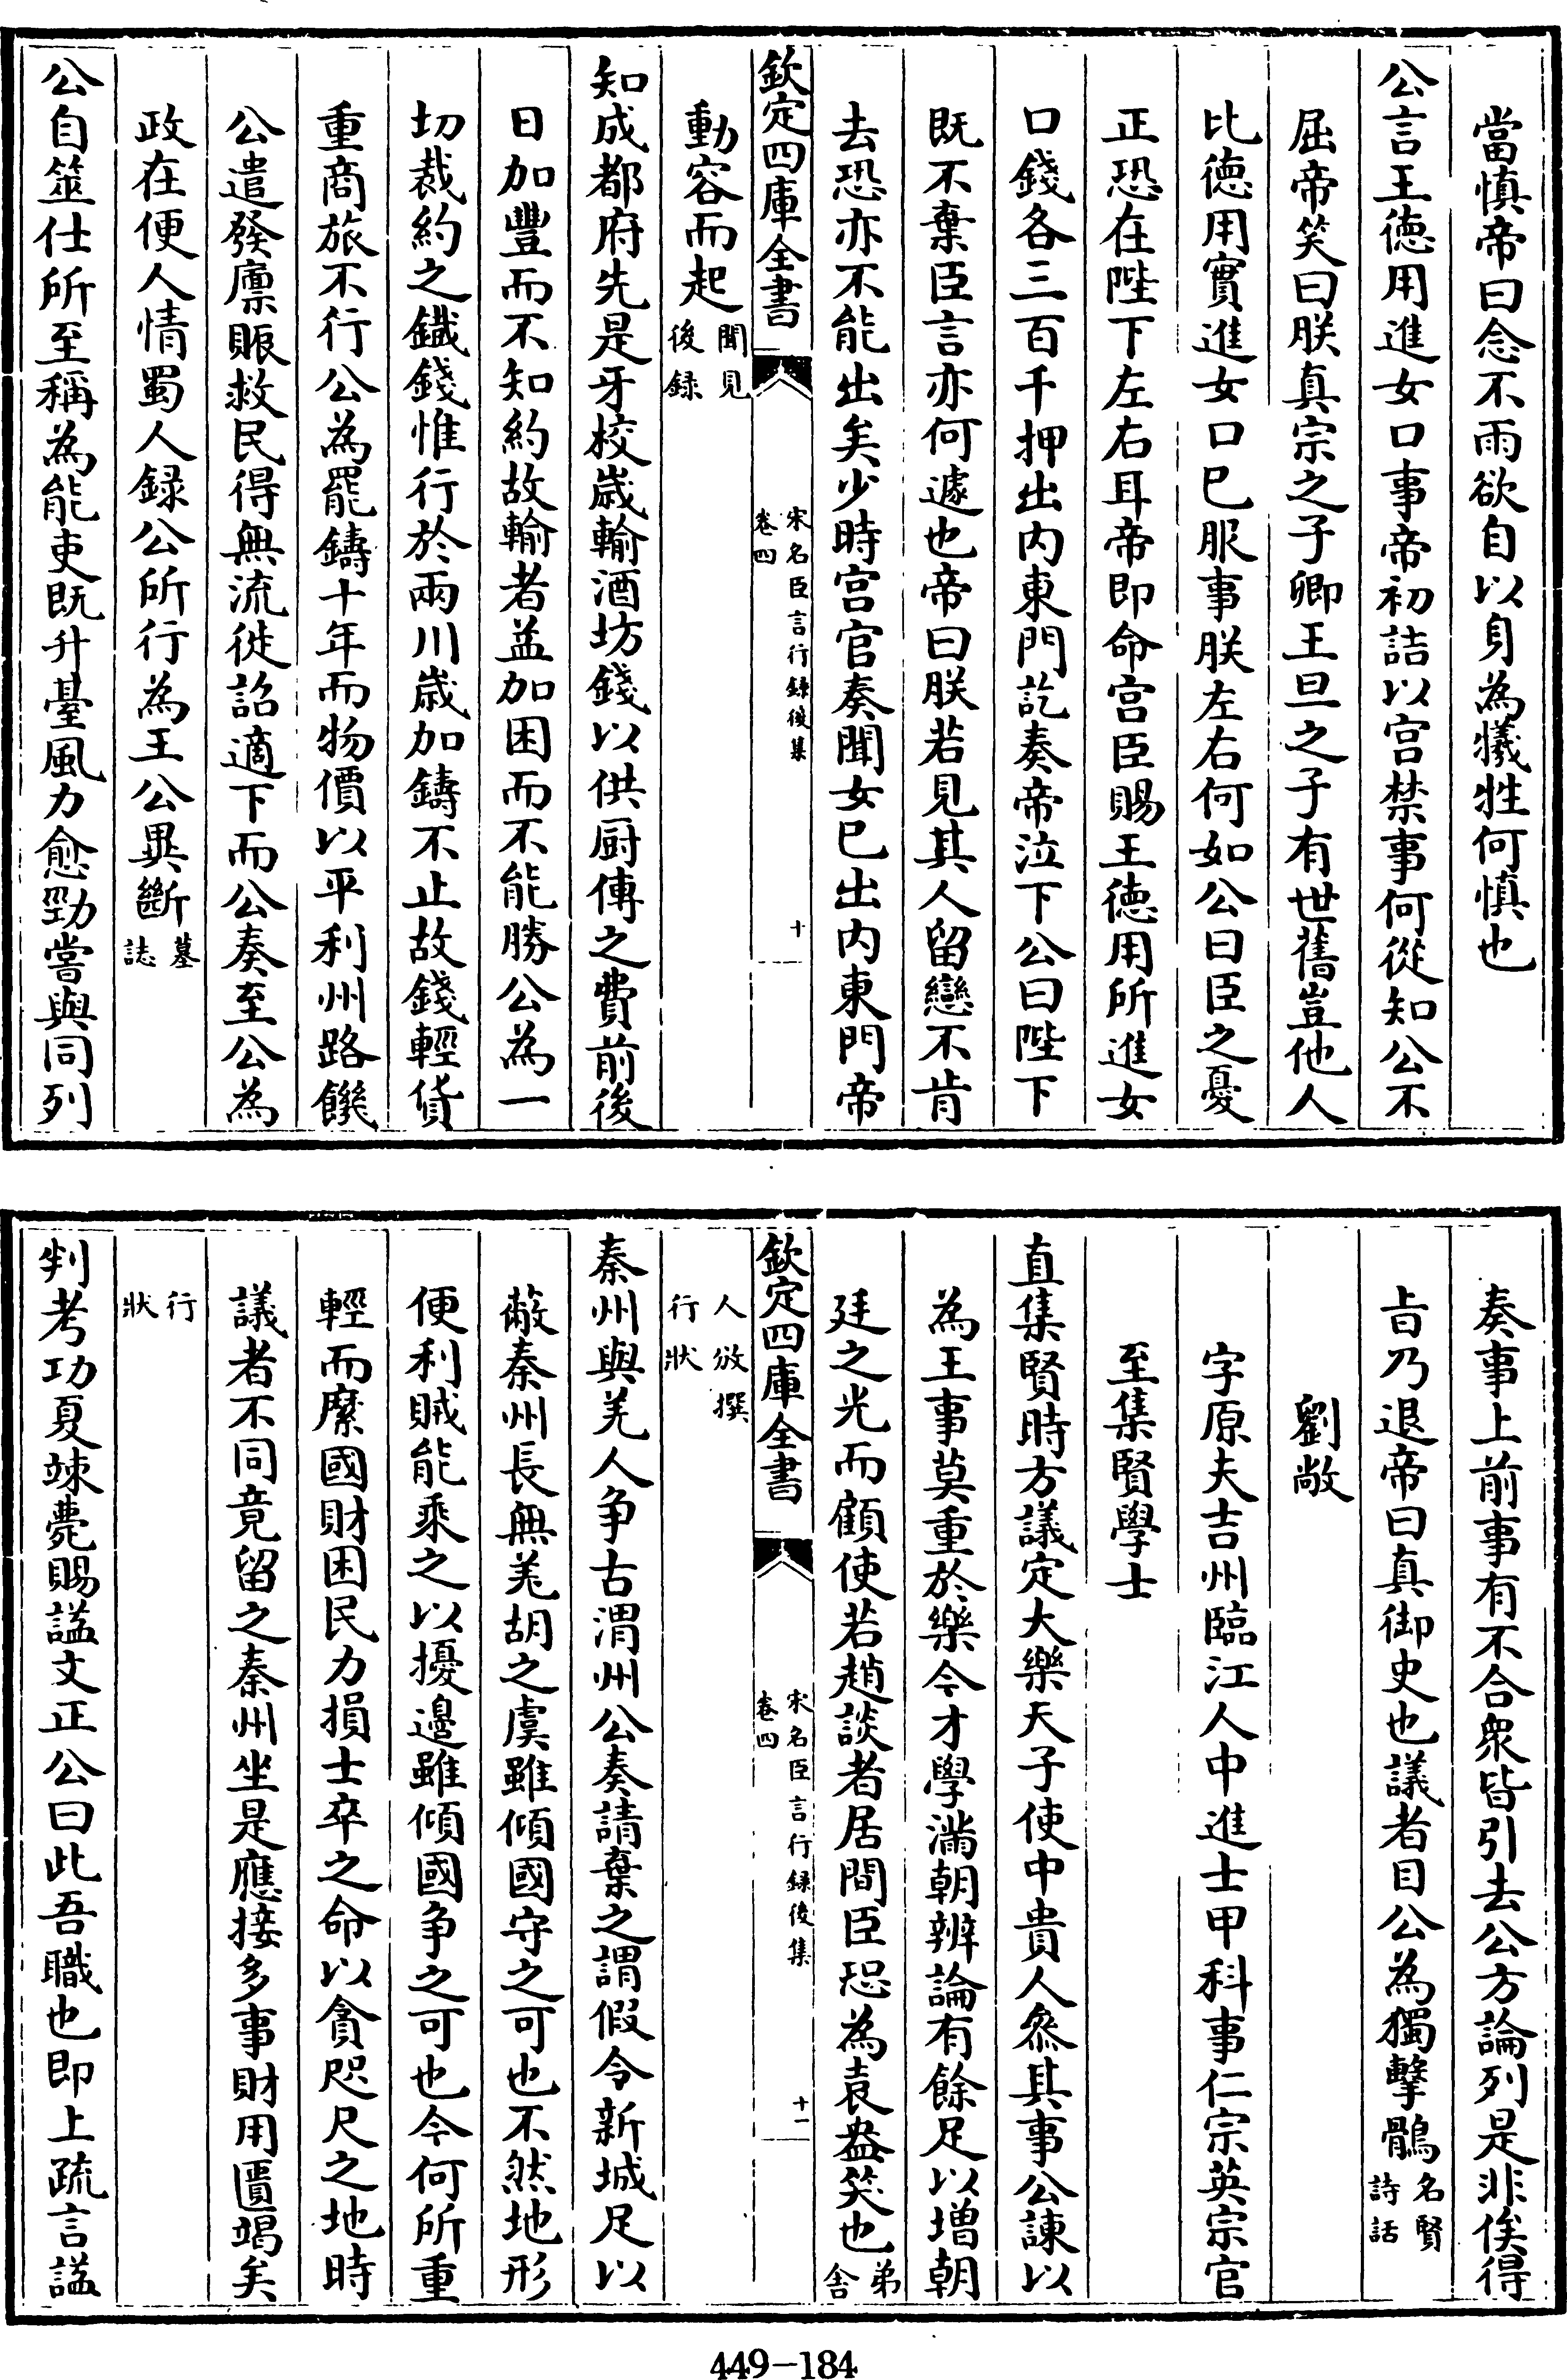 當慎帝曰念不雨欲自以身為犧牲何慎也
公言王徳用進女口事帝初詰以宫禁事何從知公不
屈帝笑曰朕真宗之子卿王旦之子有世舊豈他人
比徳用實進女口已服事朕左右何如公曰臣之憂
正恐在陛下左右耳帝即命宫臣賜王徳用所進女
口錢各三百千押出内東門訖奏帝泣下公曰陛下
既不棄臣言亦何遽也帝曰朕若見其人留戀不肯
去恐亦不能出矣少時宫官奏聞女已出内東門帝
欽定四庫全書
宋名臣言行録後集
卷四
十
動容而起聞見
後録
知成都府先是牙校嵗輸酒坊錢以供厨傳之費前後
日加豐而不知約故輸者益加困而不能勝公為一
切裁約之鐵錢惟行於兩川嵗加鑄不止故錢輕貨
重商旅不行公為罷鑄十年而物價以平利州路饑
公遣發廪賑救民得無流徙詔適下而公奏至公為
政在便人情蜀人録公所行為王公異斷墓
誌
公自筮仕所至稱為能吏既升臺風力愈勁嘗與同列
奏事上前事有不合衆皆引去公方論列是非俟得
㫖乃退帝曰真御史也議者目公為獨擊鶻名賢
詩話
劉敞
字原夫吉州臨江人中進士甲科事仁宗英宗官
至集賢學士
直集賢時方議定大樂天子使中貴人叅其事公諫以
為王事莫重於樂今才學滿朝辨論有餘足以增朝
廷之光而顧使若趙談者居間臣恐為袁盎笑也弟
舍
欽定四庫全書
宋名臣言行録後集
卷四
十一
人攽撰
行狀
秦州與羌人争古渭州公奏請棄之謂假令新城足以
蔽秦州長無羌胡之虞雖傾國守之可也不然地形
便利賊能乘之以擾邉雖傾國争之可也今何所重
輕而縻國財困民力損士卒之命以貪咫尺之地時
議者不同竟留之秦州坐是應接多事財用匱竭矣
行
狀
判考功夏竦薨賜諡文正公曰此吾職也即上疏言諡
449-184